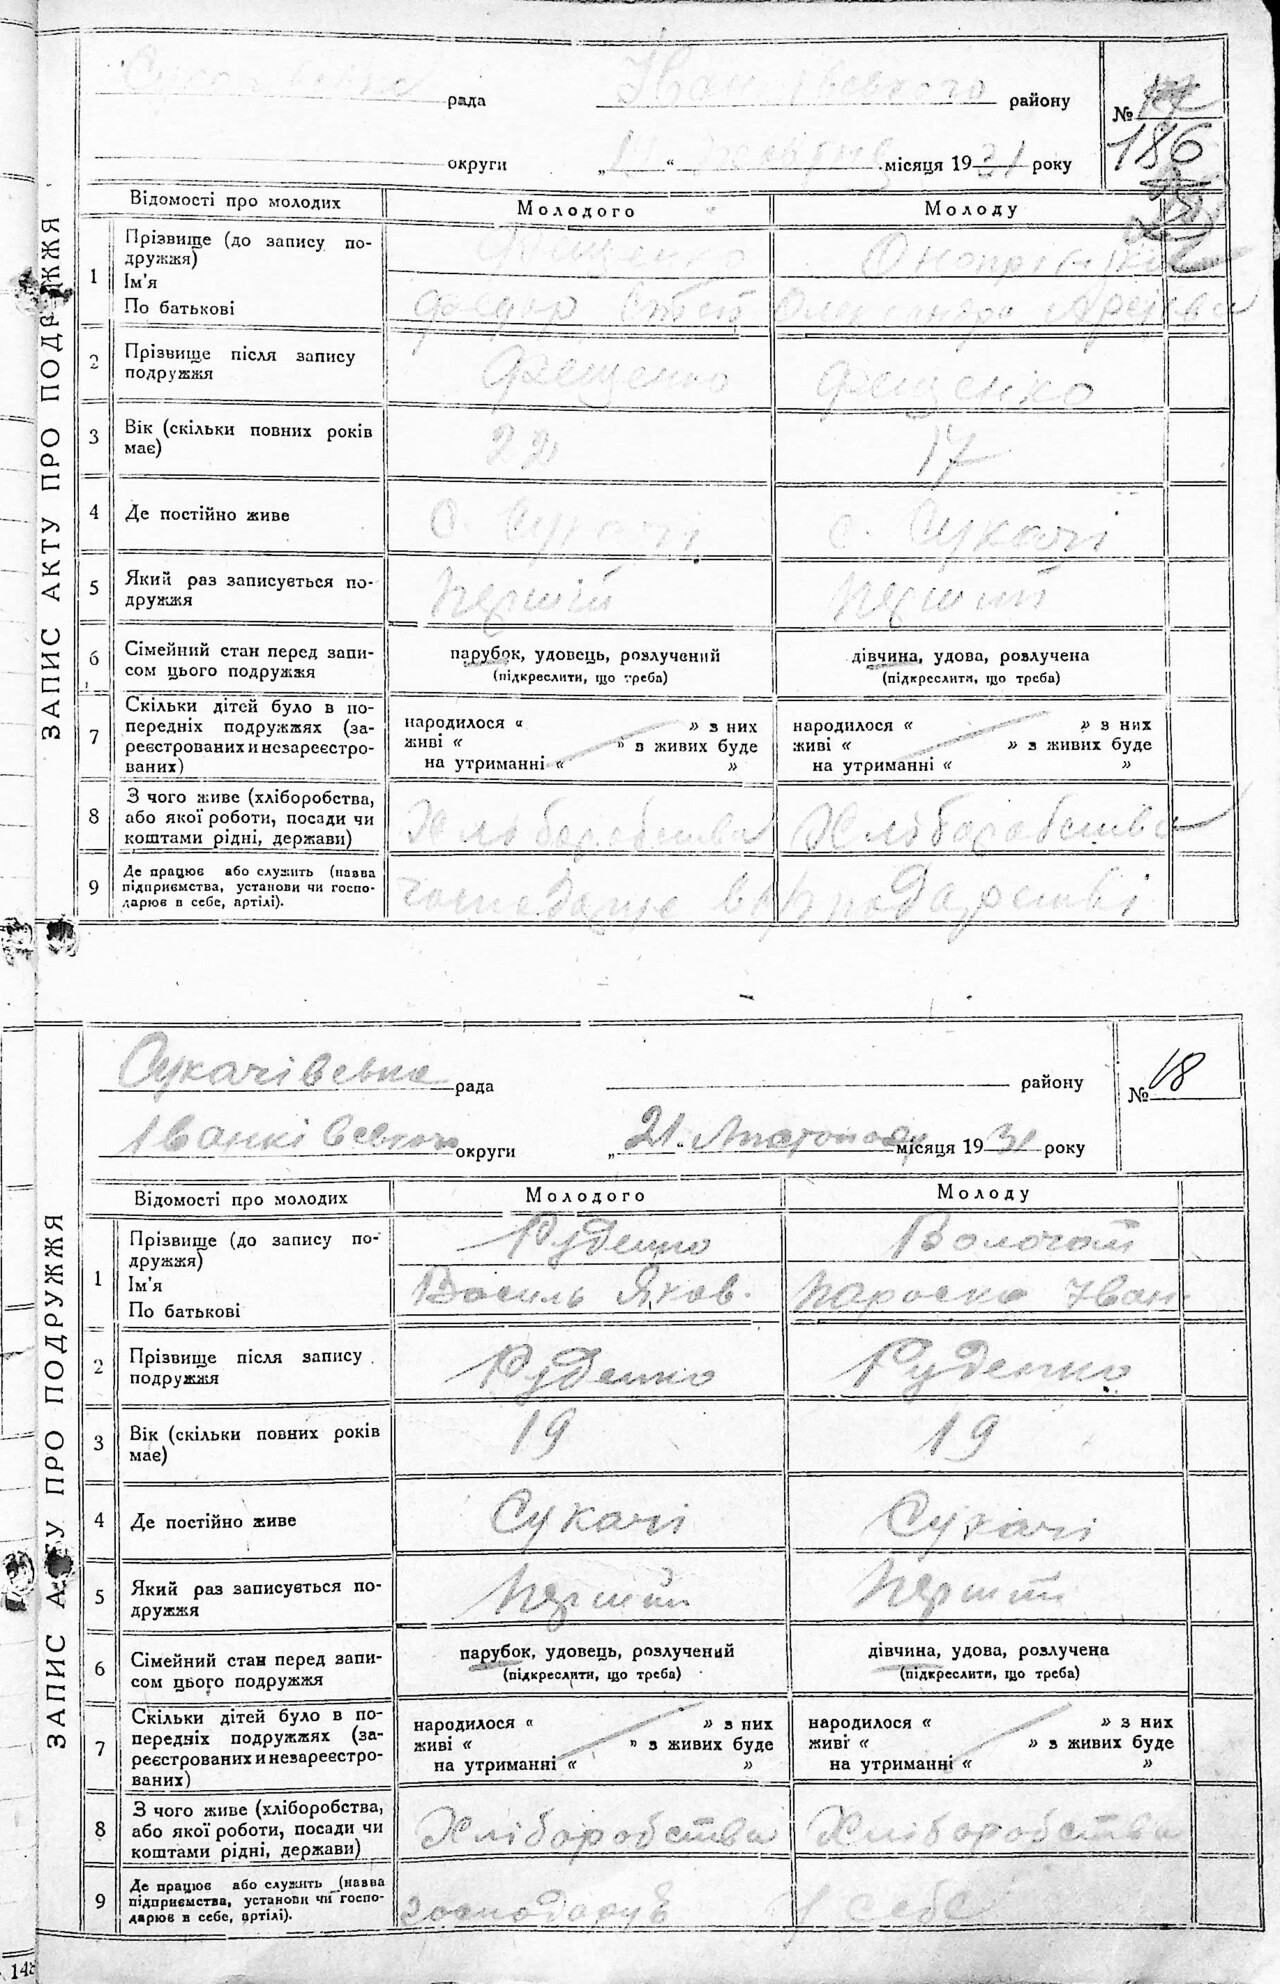 ЗАПИС АКТУ ПРО ПОДРУЖЖЯ
рада Іванківського району
№ 186
округи „ " місяця 1931 року
Відомості про молодих Молодого Молоду
1 Прізвище (до запису по-
дружжя)
Ім'я
По батькові
Фещенко
Федор Степ
2 Прізвище після запису
подружжя
Фещенко Фещенко
3 Вік (скільки повних років
має)
22 17
4 Де постійно живе с. Сукачі с. Сукачі
5 Який раз записується по-
дружжя
Перший Перший
6 Сімейний стан перед запи-
сом цього подружжя
парубок, удовець, розлучений дівчина, удова, розлучена
(підкреслити, що треба) (підкреслити, що треба)
7 Скільки дітей було в по-
передніх подружжях (за-
реєстрованих и незареєстро-
ваних)
народилося « » з них народилося « » з них
живі « » з живих буде живі « » з живих буде
на утриманні « » на утриманні « »
8 З чого живе (хліборобства,
або якої роботи, посади чи
коштами рідні, держави)
Хліборобства Хліборобства
9 Де працює або служить (назва
підприємства, установи чи госпо-
дарює в себе, артілі).
ЗАПИС АКТУ ПРО ПОДРУЖЖЯ
Сукачівська рада району
№ 18
Іванківського округи „21" Листопаду місяця 1931 року
Відомості про молодих Молодого Молоду
1 Прізвище (до запису по-
дружжя)
Ім'я
По батькові
Руденко
Василь Яков. Параска Іван.
2 Прізвище після запису
подружжя
Руденко Руденко
3 Вік (скільки повних років
має)
19 19
4 Де постійно живе Сукачі Сукачі
5 Який раз записується по-
дружжя
Перший Перший
6 Сімейний стан перед запи-
сом цього подружжя
парубок, удовець, розлучений дівчина, удова, розлучена
(підкреслити, що треба) (підкреслити, що треба)
7 Скільки дітей було в по-
передніх подружжях (за-
реєстрованих и незареєстро-
ваних)
народилося « » з них народилося « » з них
живі « » з живих буде живі « » з живих буде
на утриманні « » на утриманні « »
8 З чого живе (хліборобства,
або якої роботи, посади чи
коштами рідні, держави)
Хліборобства Хліборобства
9 Де працює або служить (назва
підприємства, установи чи госпо-
дарює в себе, артілі).
у себе
148